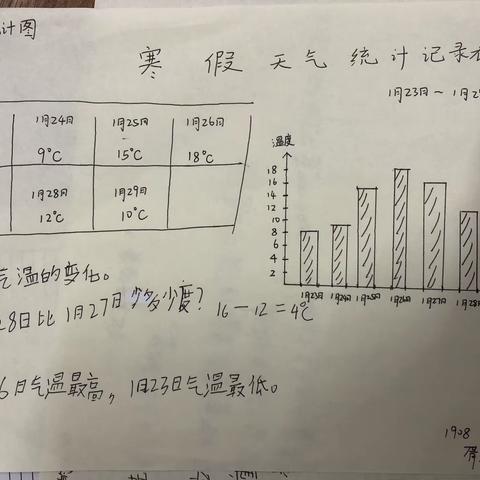 计图
寒 假 天气 统计记录
1月23日~1月2
1月24日 1月25日 1月26日
9°C 15°C 18°C
1月28日 1月29日
12°C 10°C
温度
18
16
14
12
10
8
6
4
2
1月23日 1月24日 1月25日 1月26日 1月27日 1月28日
气温的变化。
28日比1月27日少多少度? 16-12=4°C
6日气温最高,1月23日气温最低。
1908